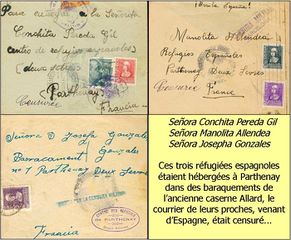 Para entregar a la Señorita
Conchita Pereda Gil
Centro de refugiados españoles
(deux sèvres)
Parthenay
Censuree
Francia
¡Arriba España!
Manolita Allendea
Refugios Españoles
Parthenay Deux Sevres
France
Señora D Josefa Gonzales
Barracament Gonzales
nº 1 Parthenay Deux Sevres
PARTHENAY
Francia
Señora Conchita Pereda Gil
Señora Manolita Allendea
Señora Josepha Gonzales
Ces trois réfugiées espagnoles
étaient hébergées à Parthenay
dans des baraquements de
l'ancienne caserne Allard, le
courrier de leurs proches, venant
d'Espagne, était censuré...